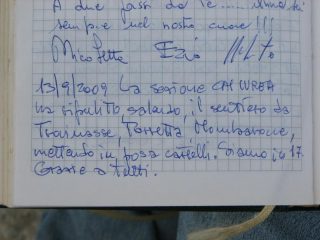 A due passi da Te ..... 
sempre nel nostro cuore !!!
Nicoletta Ezio
13/9/2009 La sezione CAI IVREA
ha ripulito salendo, il sentiero da
Trovinasse, Torretta, Mombarone,
mettendo in posa cartelli. Siamo in 17.
Grazie a tutti.